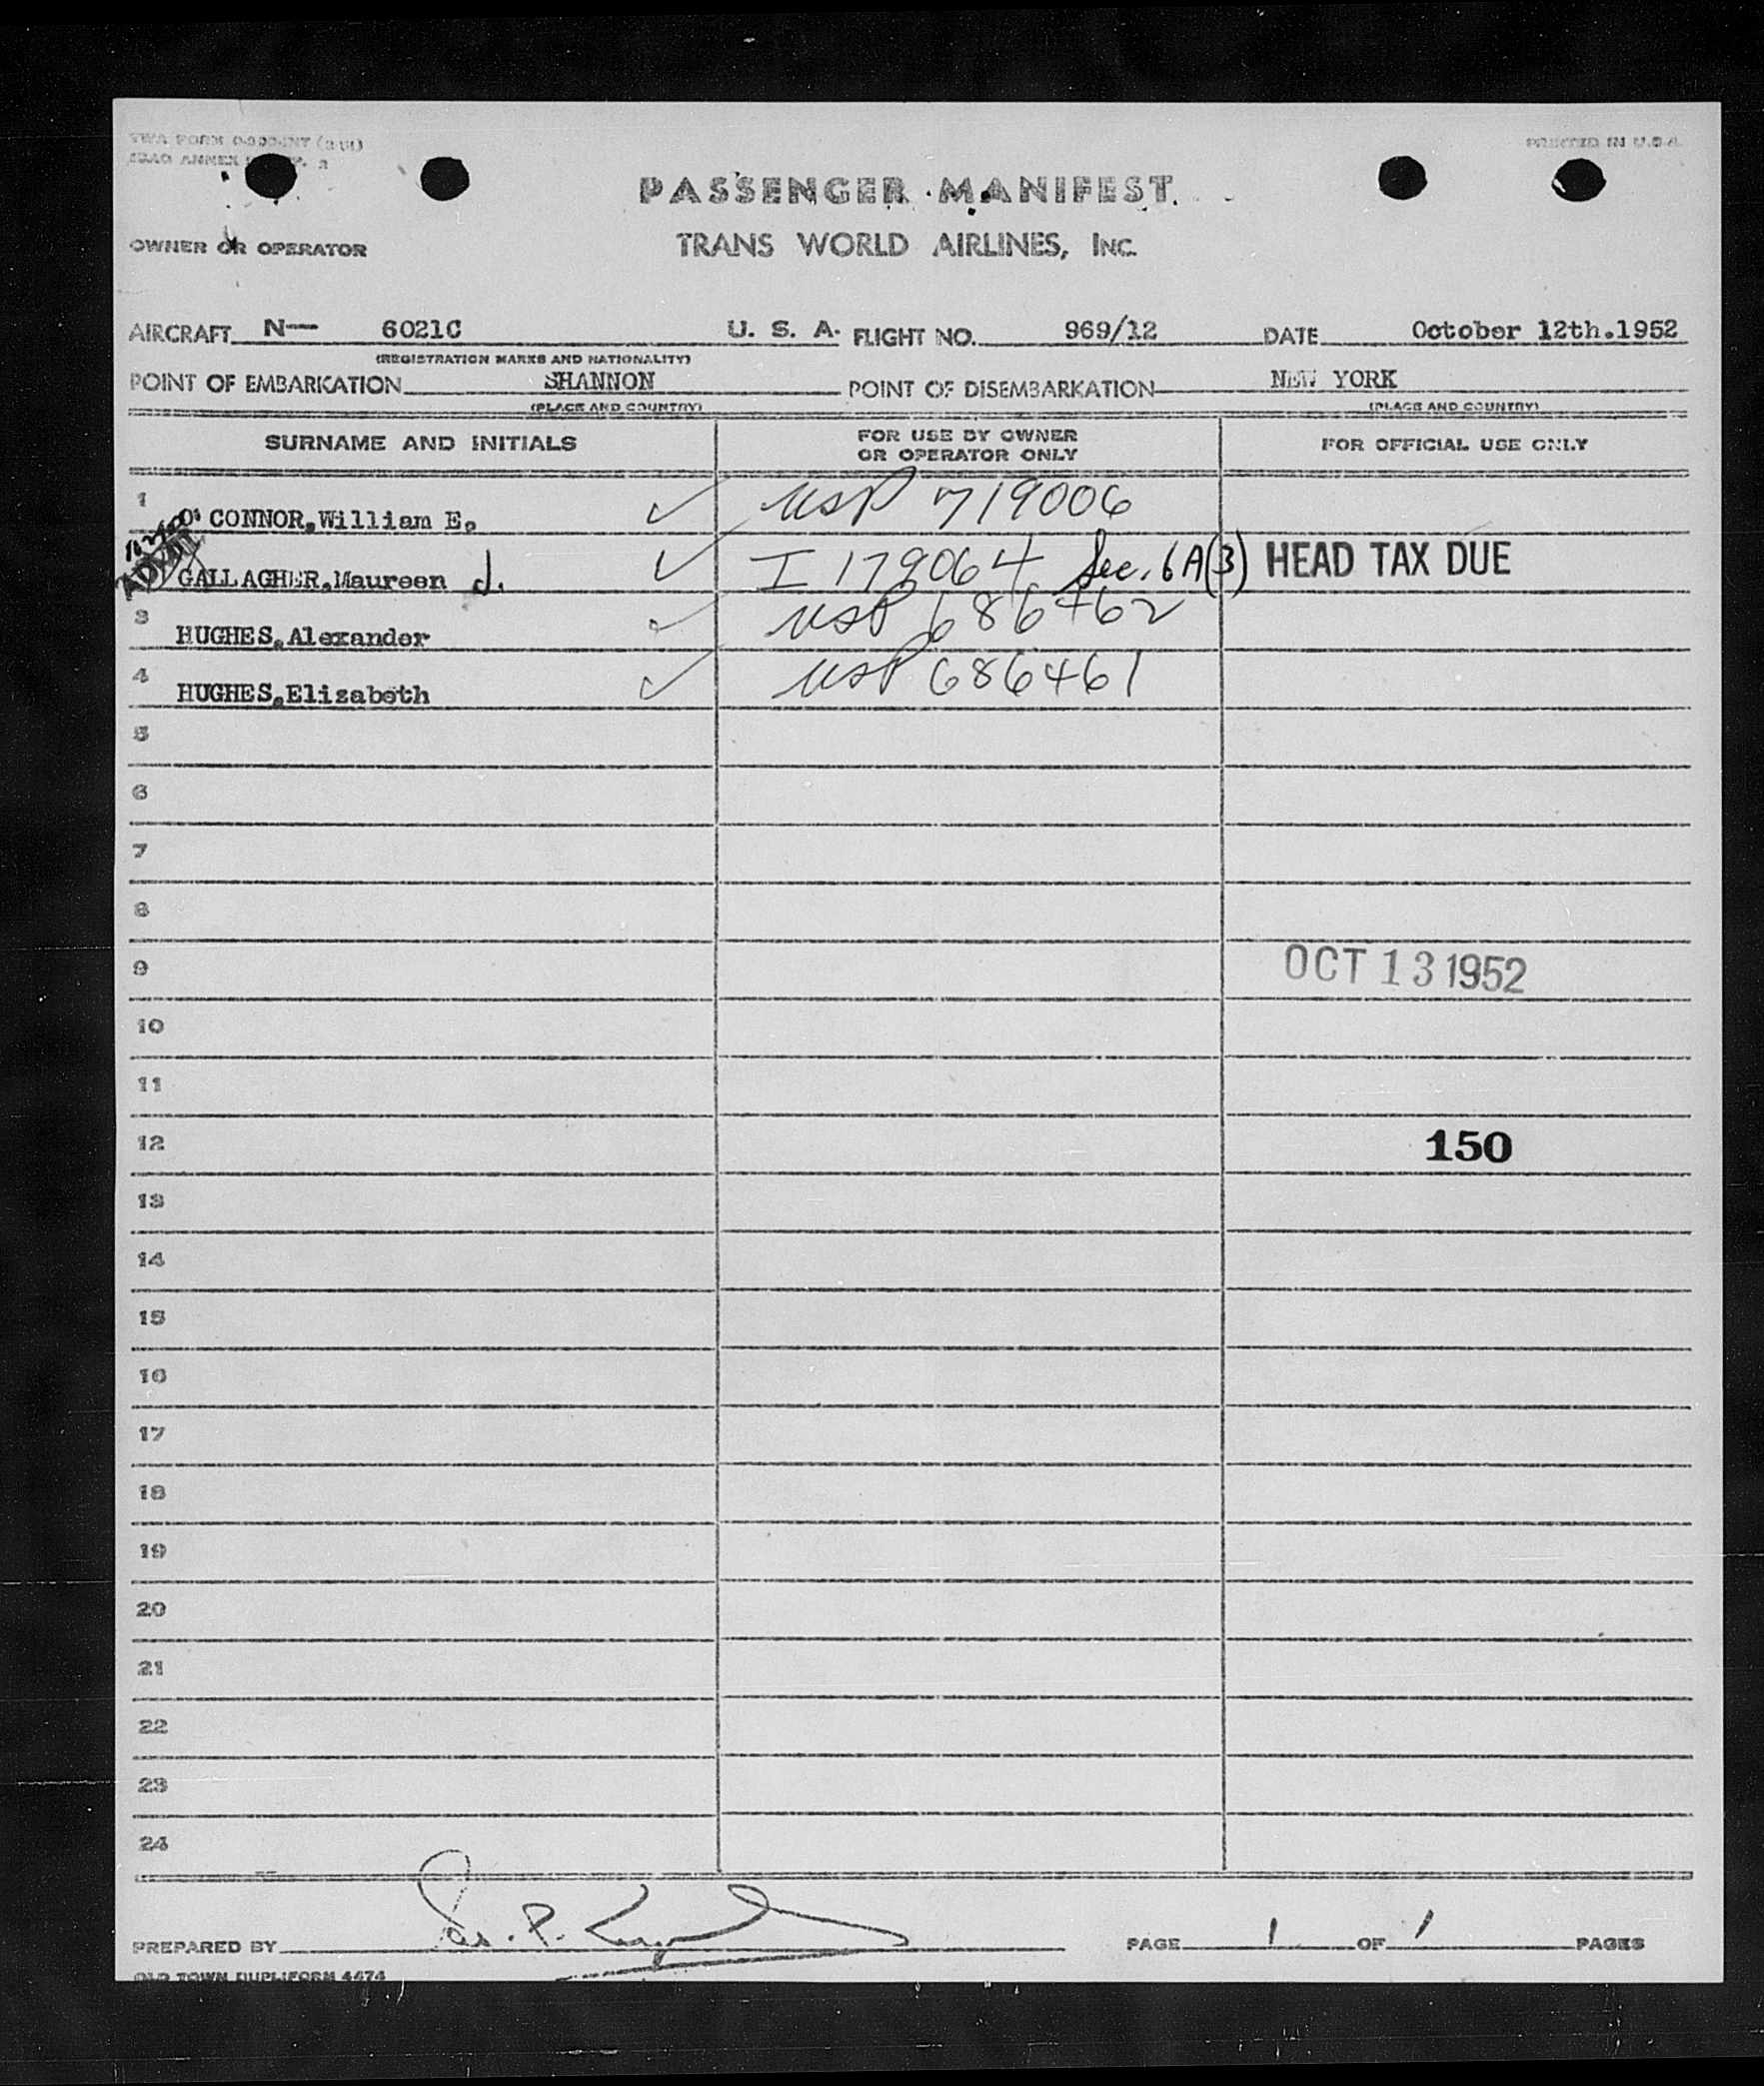 PRINTED IN U.S.A.
PASSENGER MANIFEST
OWNER OR OPERATOR
TRANS WORLD AIRLINES, INC.
AIRCRAFT N— 6021C U. S. A. FLIGHT NO. 969/12 DATE October 12th.1952
(REGISTRATION MARKS AND NATIONALITY)
POINT OF EMBARKATION SHANNON POINT OF DISEMBARKATION NEW YORK
(PLACE AND COUNTRY) (PLACE AND COUNTRY)
SURNAME AND INITIALS FOR USE BY OWNER OR OPERATOR ONLY FOR OFFICIAL USE ONLY
1 O' CONNOR,William E. ✓ USP 719006
GALLAGHER,Maureen J. ✓ I 179064 Sec. 6A(3) HEAD TAX DUE
3 HUGHES,Alexander ✓ USP 686462
4 HUGHES,Elizabeth ✓ USP 686461
5
6
7
8
9 OCT 13 1952
10
11
12 150
13
14
15
16
17
18
19
20
21
22
23
24
PREPARED BY PAGE 1 OF 1 PAGES
OLD TOWN DUPLIFORM 4474